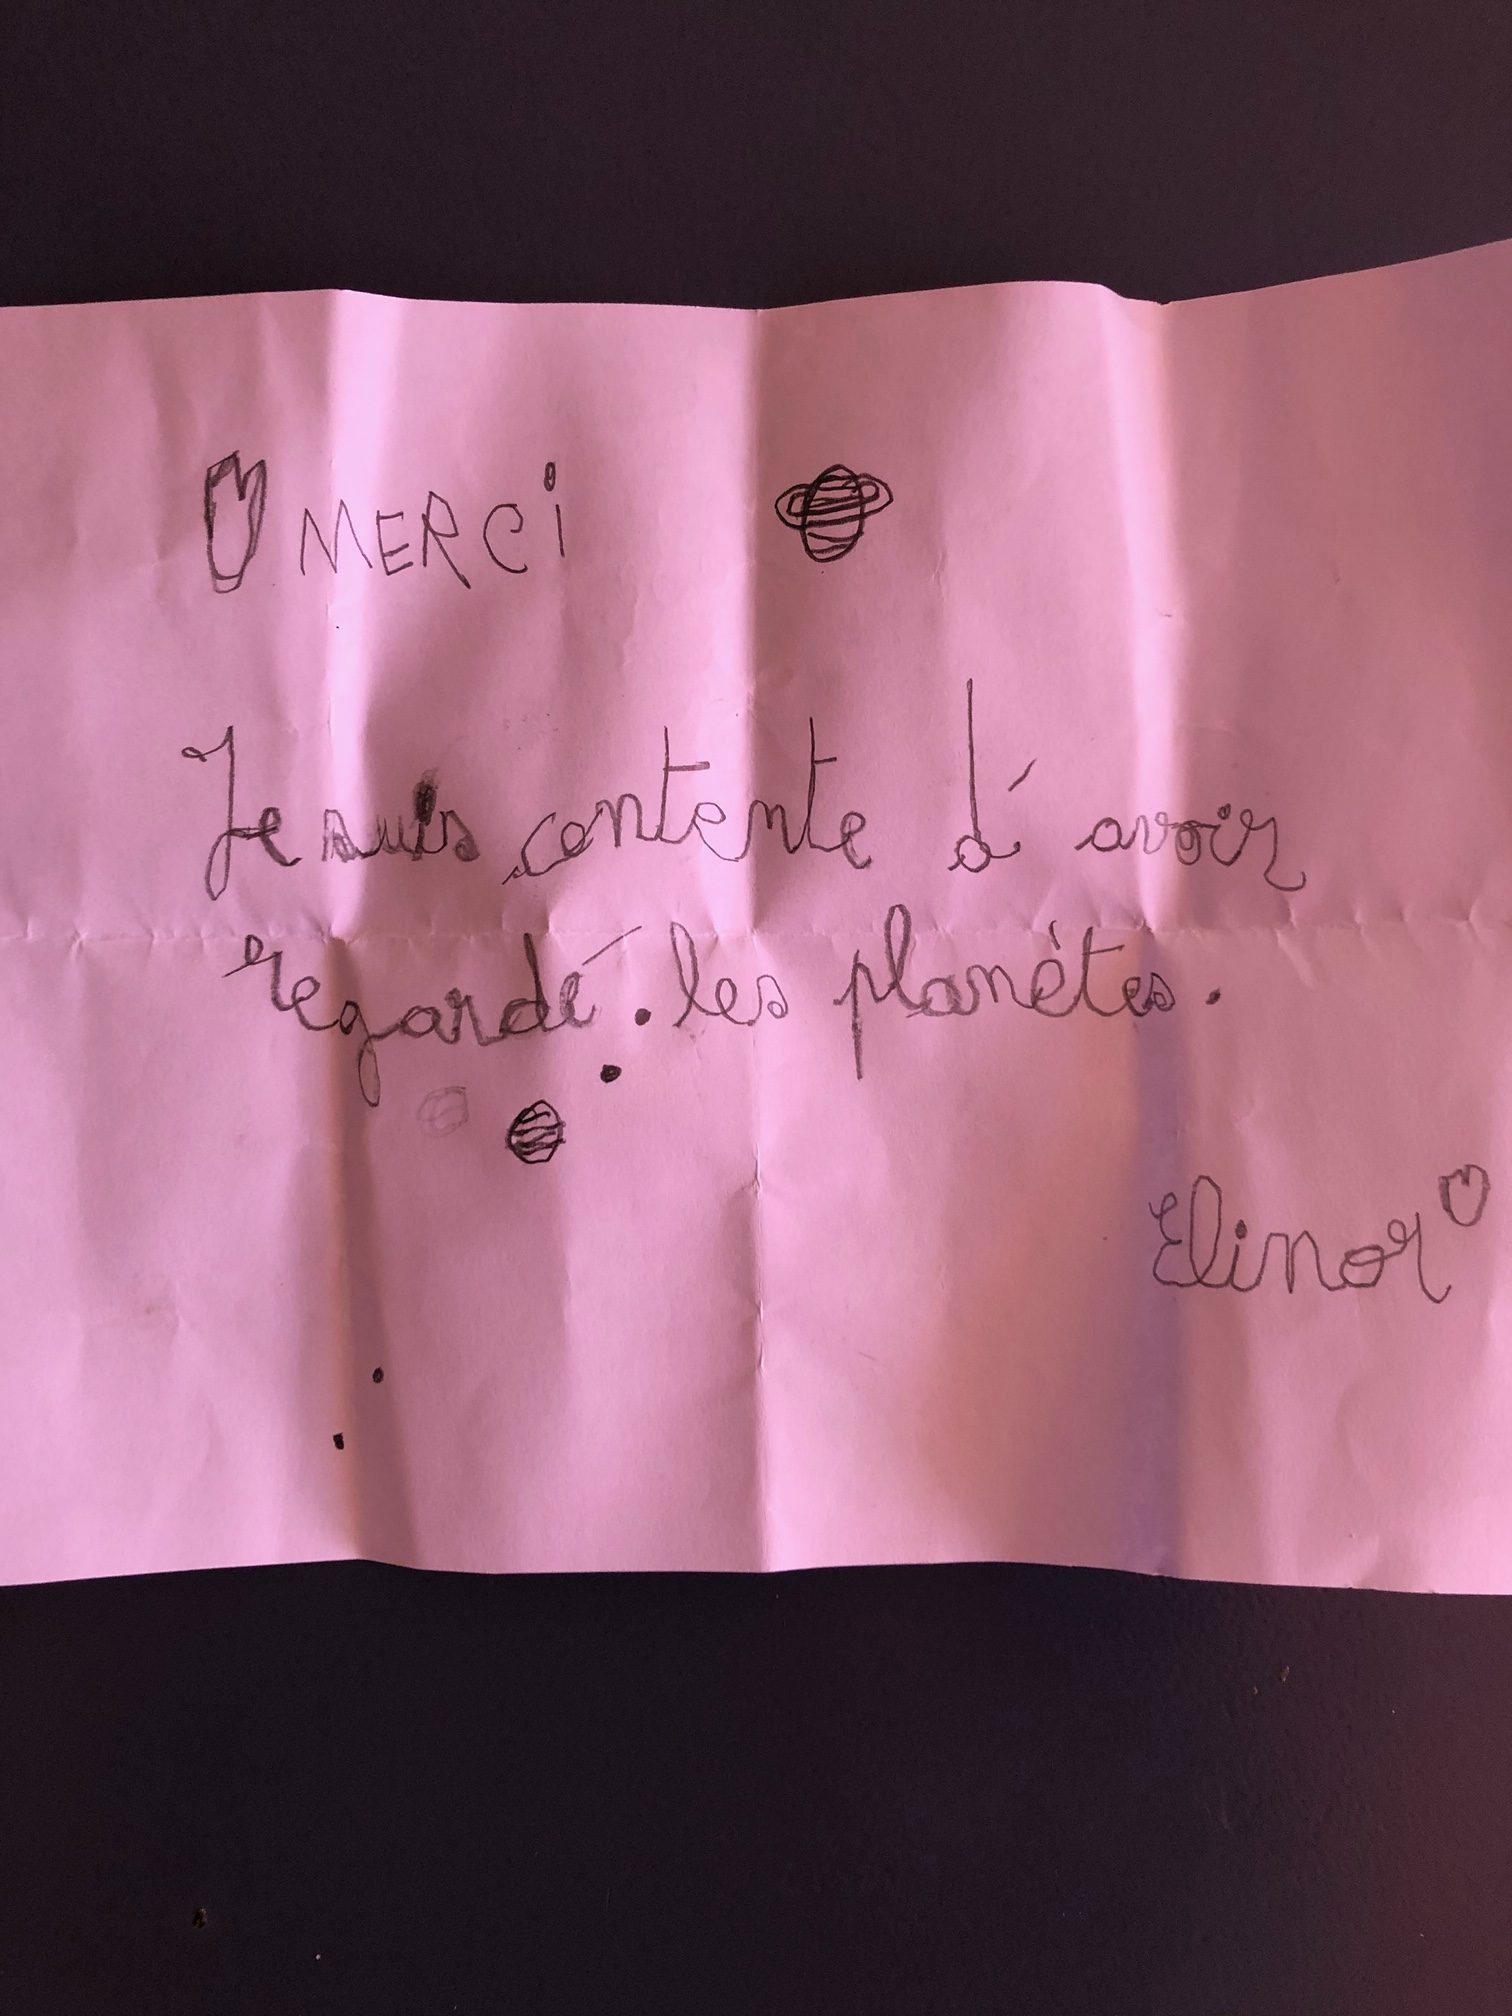 MERCi
Je suis contente d'avoir
regardé. les planètes.
Elinor